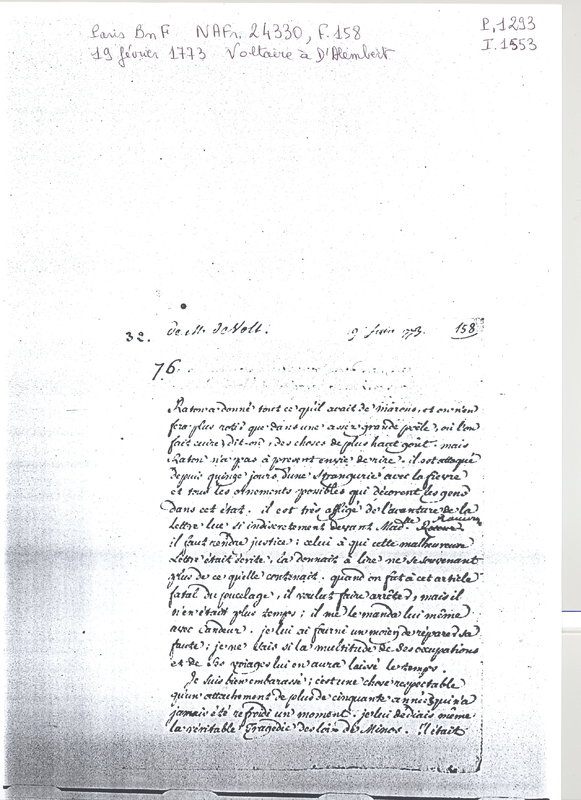 Paris BnF NAFr. 24330, F. 158
P. 1293
19 février 1773 Voltaire à D'Alembert
I. 1553
32. de M. de Volt. 9 février 1773. 158
76.
Raton a donné tout ce qu'il avait de marons, et on n'en
fera plus rotir que dans une assez grande poële, où l'on
fait cuire, dit-on, des choses de plus haut goût. mais
Raton n'a pas à present envie de rire. il est attaqué
depuis quinze jours d'une Strangurie avec la fievre
et tous les ornements possibles qui décorent les gens
dans cet état. il est très affligé de l'avanture de la
Lettre lue si indiscretement devant Made
il faut rendre justice; celui à qui cette malheureuse
Lettre était écrite, la donnait à lire ne se souvenant
plus de ce qu'elle contenait. quand on fut à cet article
fatal du pucelage, il voulut faire arrêter, mais il
n'en était plus temps; il me le manda lui même
avec candeur. je lui ai fourni un moien de réparer sa
faute; je ne sais si la multitude de ses occupations
et de ses voiages lui en aura laissé le temps.
Je suis bien embarassé; c'est une chose respectable
qu'un attachement de plus de cinquante années qui n'a
jamais été refroidi un moment. je lui dédiais même
la véritable Tragédie des loix de Minos. Il était